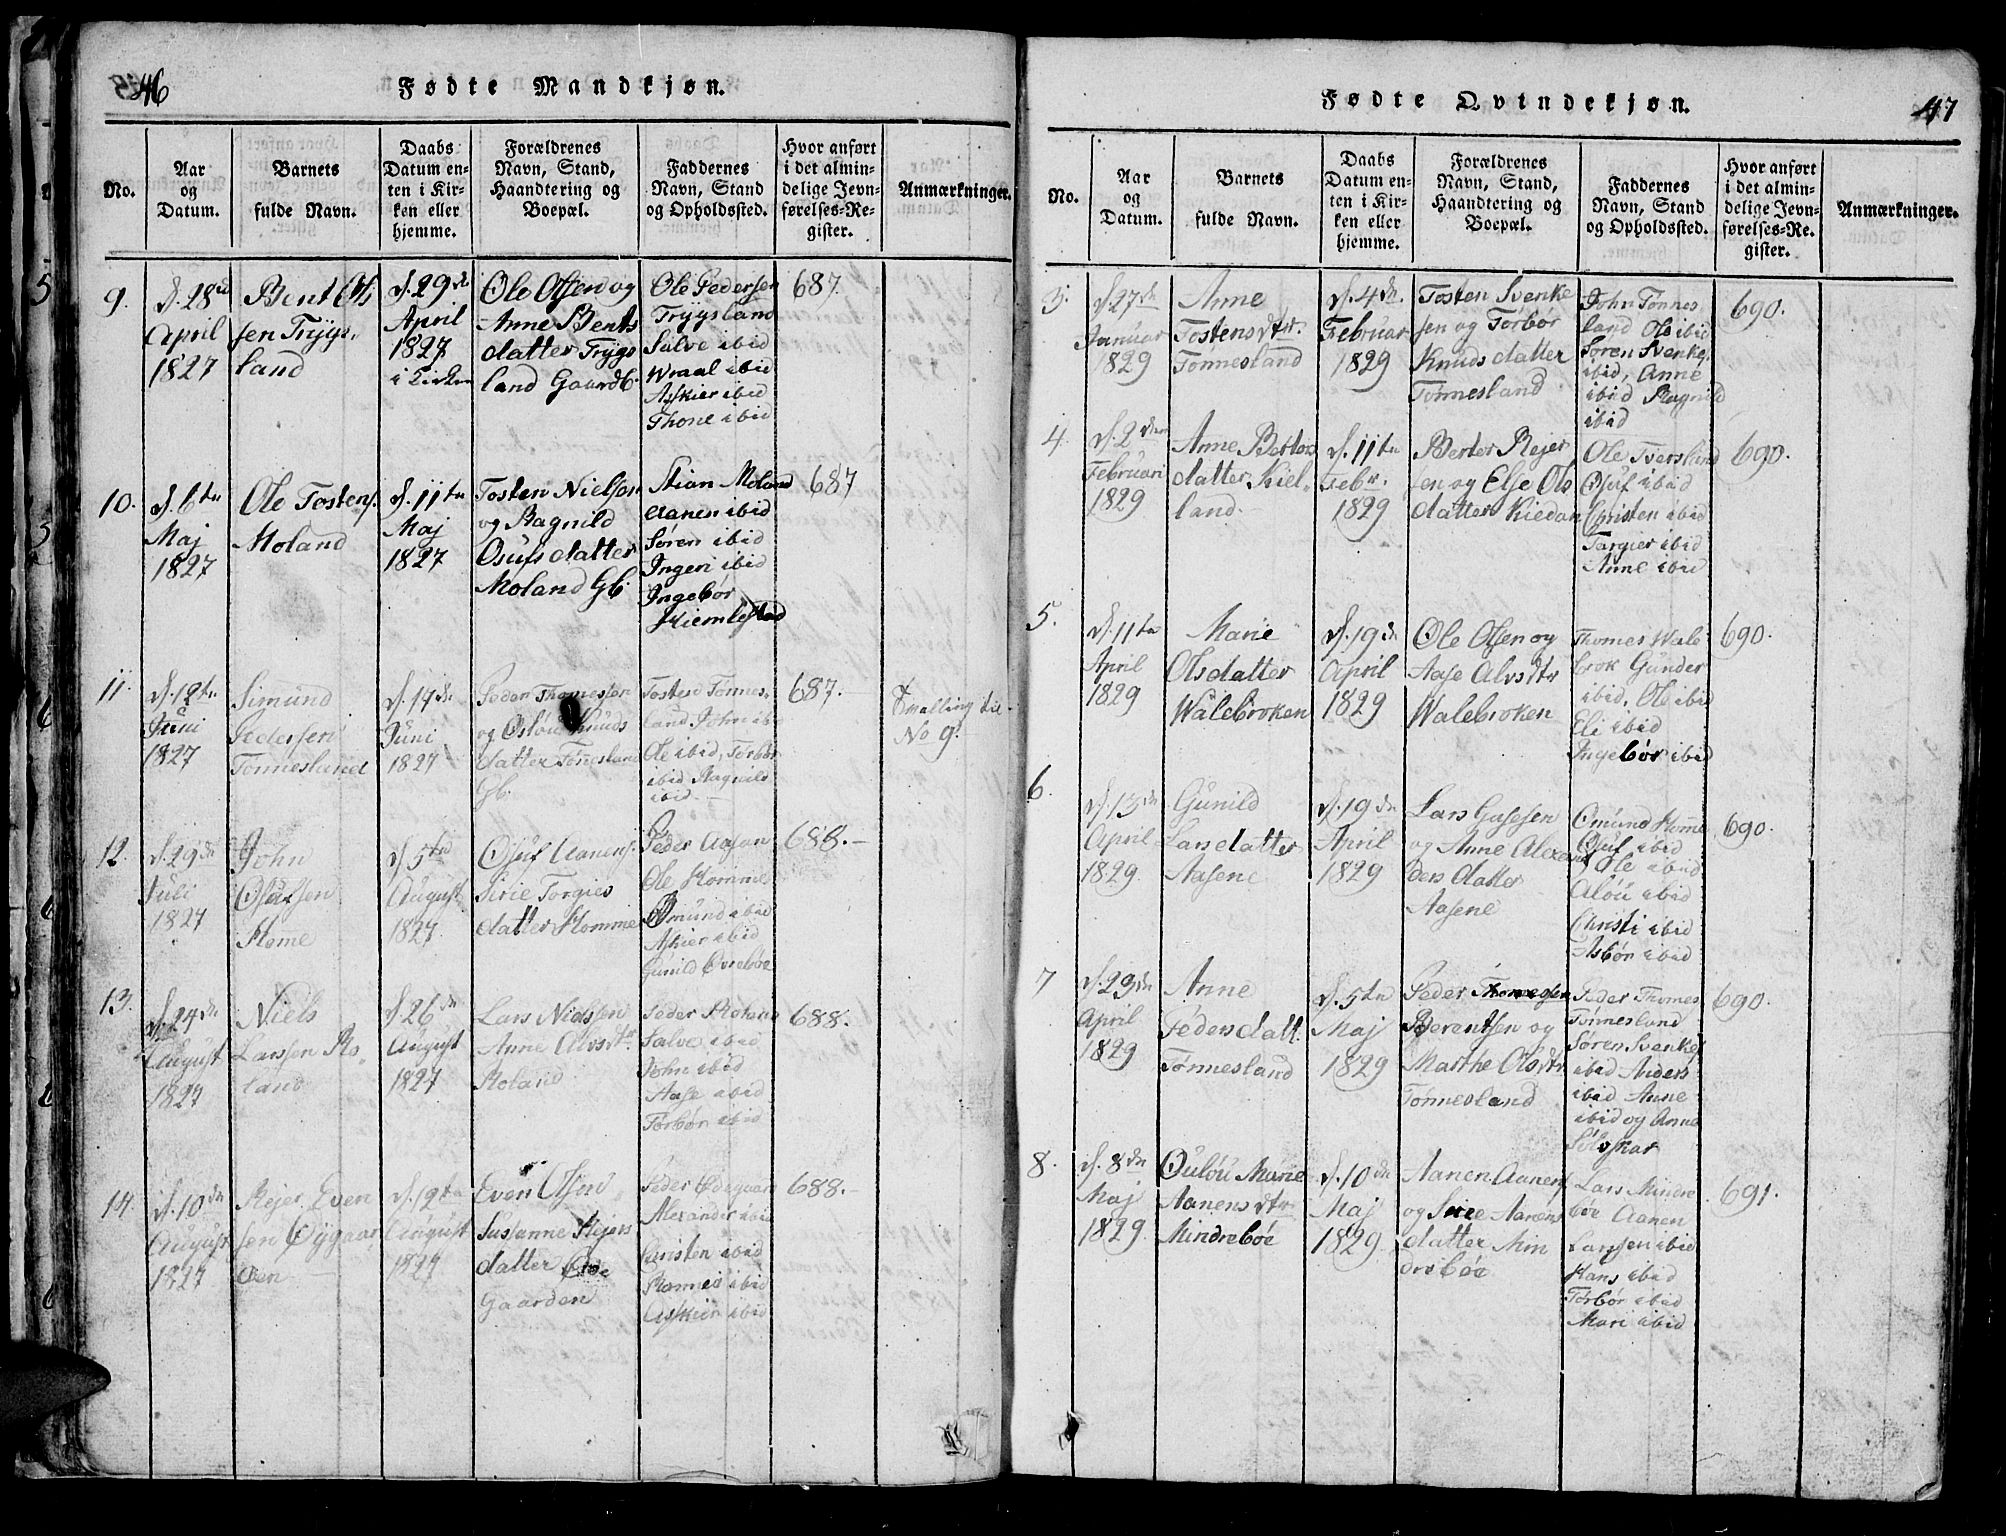 46
Fødte Mandkjøn.
No.
Aar
og
Datum.
Barnets
fulde Navn.
Daabs
Datum en-
ten i Kir-
ken eller
hjemme.
Forældrenes
Navn, Stand,
Haandtering og
Boepæl.
Faddernes
Navn, Stand
og Opholdssted.
Hvor anført
i det almin-
delige Jevn-
førelses-Re-
gister.
Anmærkninger.
9.
d. 28de
April
1827
Bent Ol
sen Trygs-
land
d. 29de
April
1827
i Kirken
Ole Olsen og
Anne Bents
datter Trygs
land Gaardb.
Ole Pedersen
Trygsland
Salve ibid
Wraal ibid
Askier ibid
Thone ibid
687.
10.
d. 6te
Maj
1827
Ole Tostens.
Moland
d. 11te
Maj
1827
Tosten Nielsen
og Ragnild
Osufsdatter
Moland Gb.
Stian Moland
Aanen ibid
Søren ibid
Ingeri ibid
Ingebør
687
11.
d. 12te
Juni
1827
Simund
Pedersen
Tønnesland
d. 17de
Juni
1827
Peder Thomessen
og Osløu Knuds
datter Tønesland
Gb.
Tosten Tønnes-
land John ib
Ole ibid, Tørbør
ibid Ragnild
ibid.
687.
Tvilling til
No 9.
12.
d. 29de
Juli
1827
John
Osufsen
Home
d. 5te
August
1827
Osuf Aanens.
Sirie Torgies
datter Homme
Peder Aasen
Ole Homme
Omund ibid
Askier ibid
Gunild Øvrebøe
688.-
13.
d. 24de
August
1827
Niels
Larssen Ro-
land
d. 26de
August
1827
Lars Nielssen
Anne Alvsdtr
Roland
Peder Roland
Salve ibid
John ibid
Aase ibid
Tørbør ibid
688.
14.
d. 10de
August
1827
Rejer Even
sen Øygaar
den
d. 12te
August
1827
Even Olsen
Susanne Rejers
datter Øye
Gaarden
Peder Ødegaar
Alexander ibid
Christen ibid
ibid
Askier ibid
688.-
47
Fødte Qvindekjøn.
No.
Aar
og
Datum.
Barnets
fulde Navn.
Daabs
Datum en-
ten i Kir-
ken eller
hjemme.
Forældrenes
Navn, Stand,
Haandtering og
Boepæl.
Faddernes
Navn, Stand
og Opholdssted.
Hvor anført
i det almin-
delige Jevn-
førelses-Re-
gister.
Anmærkninger.
3.
d. 27de
Januar
1829
Anne
Tostensdtr.
Tønnesland
d. 4de.
Februar
1829
Tosten Svenke
sen og Tørbør
Knuds datter
Tønnesland
John Tønnes
land Ole ibid
Søren Svenke.
ibid, Anne
ibid Ragnild
ibid
690.
4.
d. 2den
Februari
1829
Anne Bertors
datter Kiel-
land.
d. 11te
Febr.
1829
Berter Rejer
sen og Else Ols
datter Kiedan
Ole Tversland
Osuf ibid
Christen ibid
Targier ibid
Anne ibid
690.
5.
d. 11te
April
1829
Marie
Olsdatter
Walebroken
d. 19de
April
1829
Ole Olsen og
Aase Alvsdtr
Walebroken
Thomes Wale
brok Gunder
ibid, Ole ibid
Eli ibid
Ingebør ibid
690.
6.
d. 13de
April
1829
Gunild
Larsdatter
Aasene
d. 19de
April
1829
Lars Gasesen
og Anne Alexand
ders datter
Aasene
Omund Home
Osuf ibid
Ole ibid
Aløu ibid
Christi ibid
Asbør ibid
690.
7
d. 29de
April
1829
Anne
Pedersdatt.
Tønnesland
d. 5te
Maj
1829
Peder Thomessen
Berentsen og
Marthe Olsdtr
Tønnesland
Peder Thomes
Tønnesland
Søren Svenke
ibid Anders
ibid Anne
ibid og Anne
Sølvskar
690.
8.
d. 8de
Maj
1829
Ouløu Marie
Aanensdtr
Mindrebøe
d. 10de
Maj
1829
Aanen Aanens
og Sirie Aanens
datter Min
drebøe
Lars Mindre
bøe Aanen
Larssen ibid
Hans ibid
Tørbør ibid
Mari ibid
691.